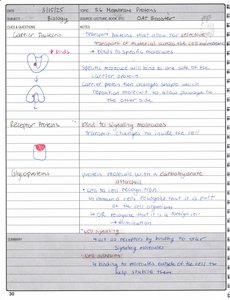 DATE 3/15/25 TOPIC 3.6 Membrane Proteins
SUBJECT Biology SOURCE: LECTURE, BOOK, ETC. OAT Booster
CUES & QUESTIONS NOTES
Carrier Proteins
transport proteins that allow for selective
transport of material across the cell membrane
binds
↳ binds to specific molecules
Specific molecule will bind to one side of the
carrier protein
Carrier protein changes shape which
molecule to allow passage to
the other side
Receptor Proteins
bind to signaling molecules
transmit changes to inside the cell
Glycoproteins
protein molecule with a carbohydrate
attached
cell to cell recognition
↳ other cells recognize that it is part
of the organism
↳ OR recognize that it is foreign cell
→ elimination
cell signaling
SUMMARY
↳ act as receptors by binding to other
signaling molecules
cell adhesion
↳ binding to molecules outside of the cell to
help stabilize them
30